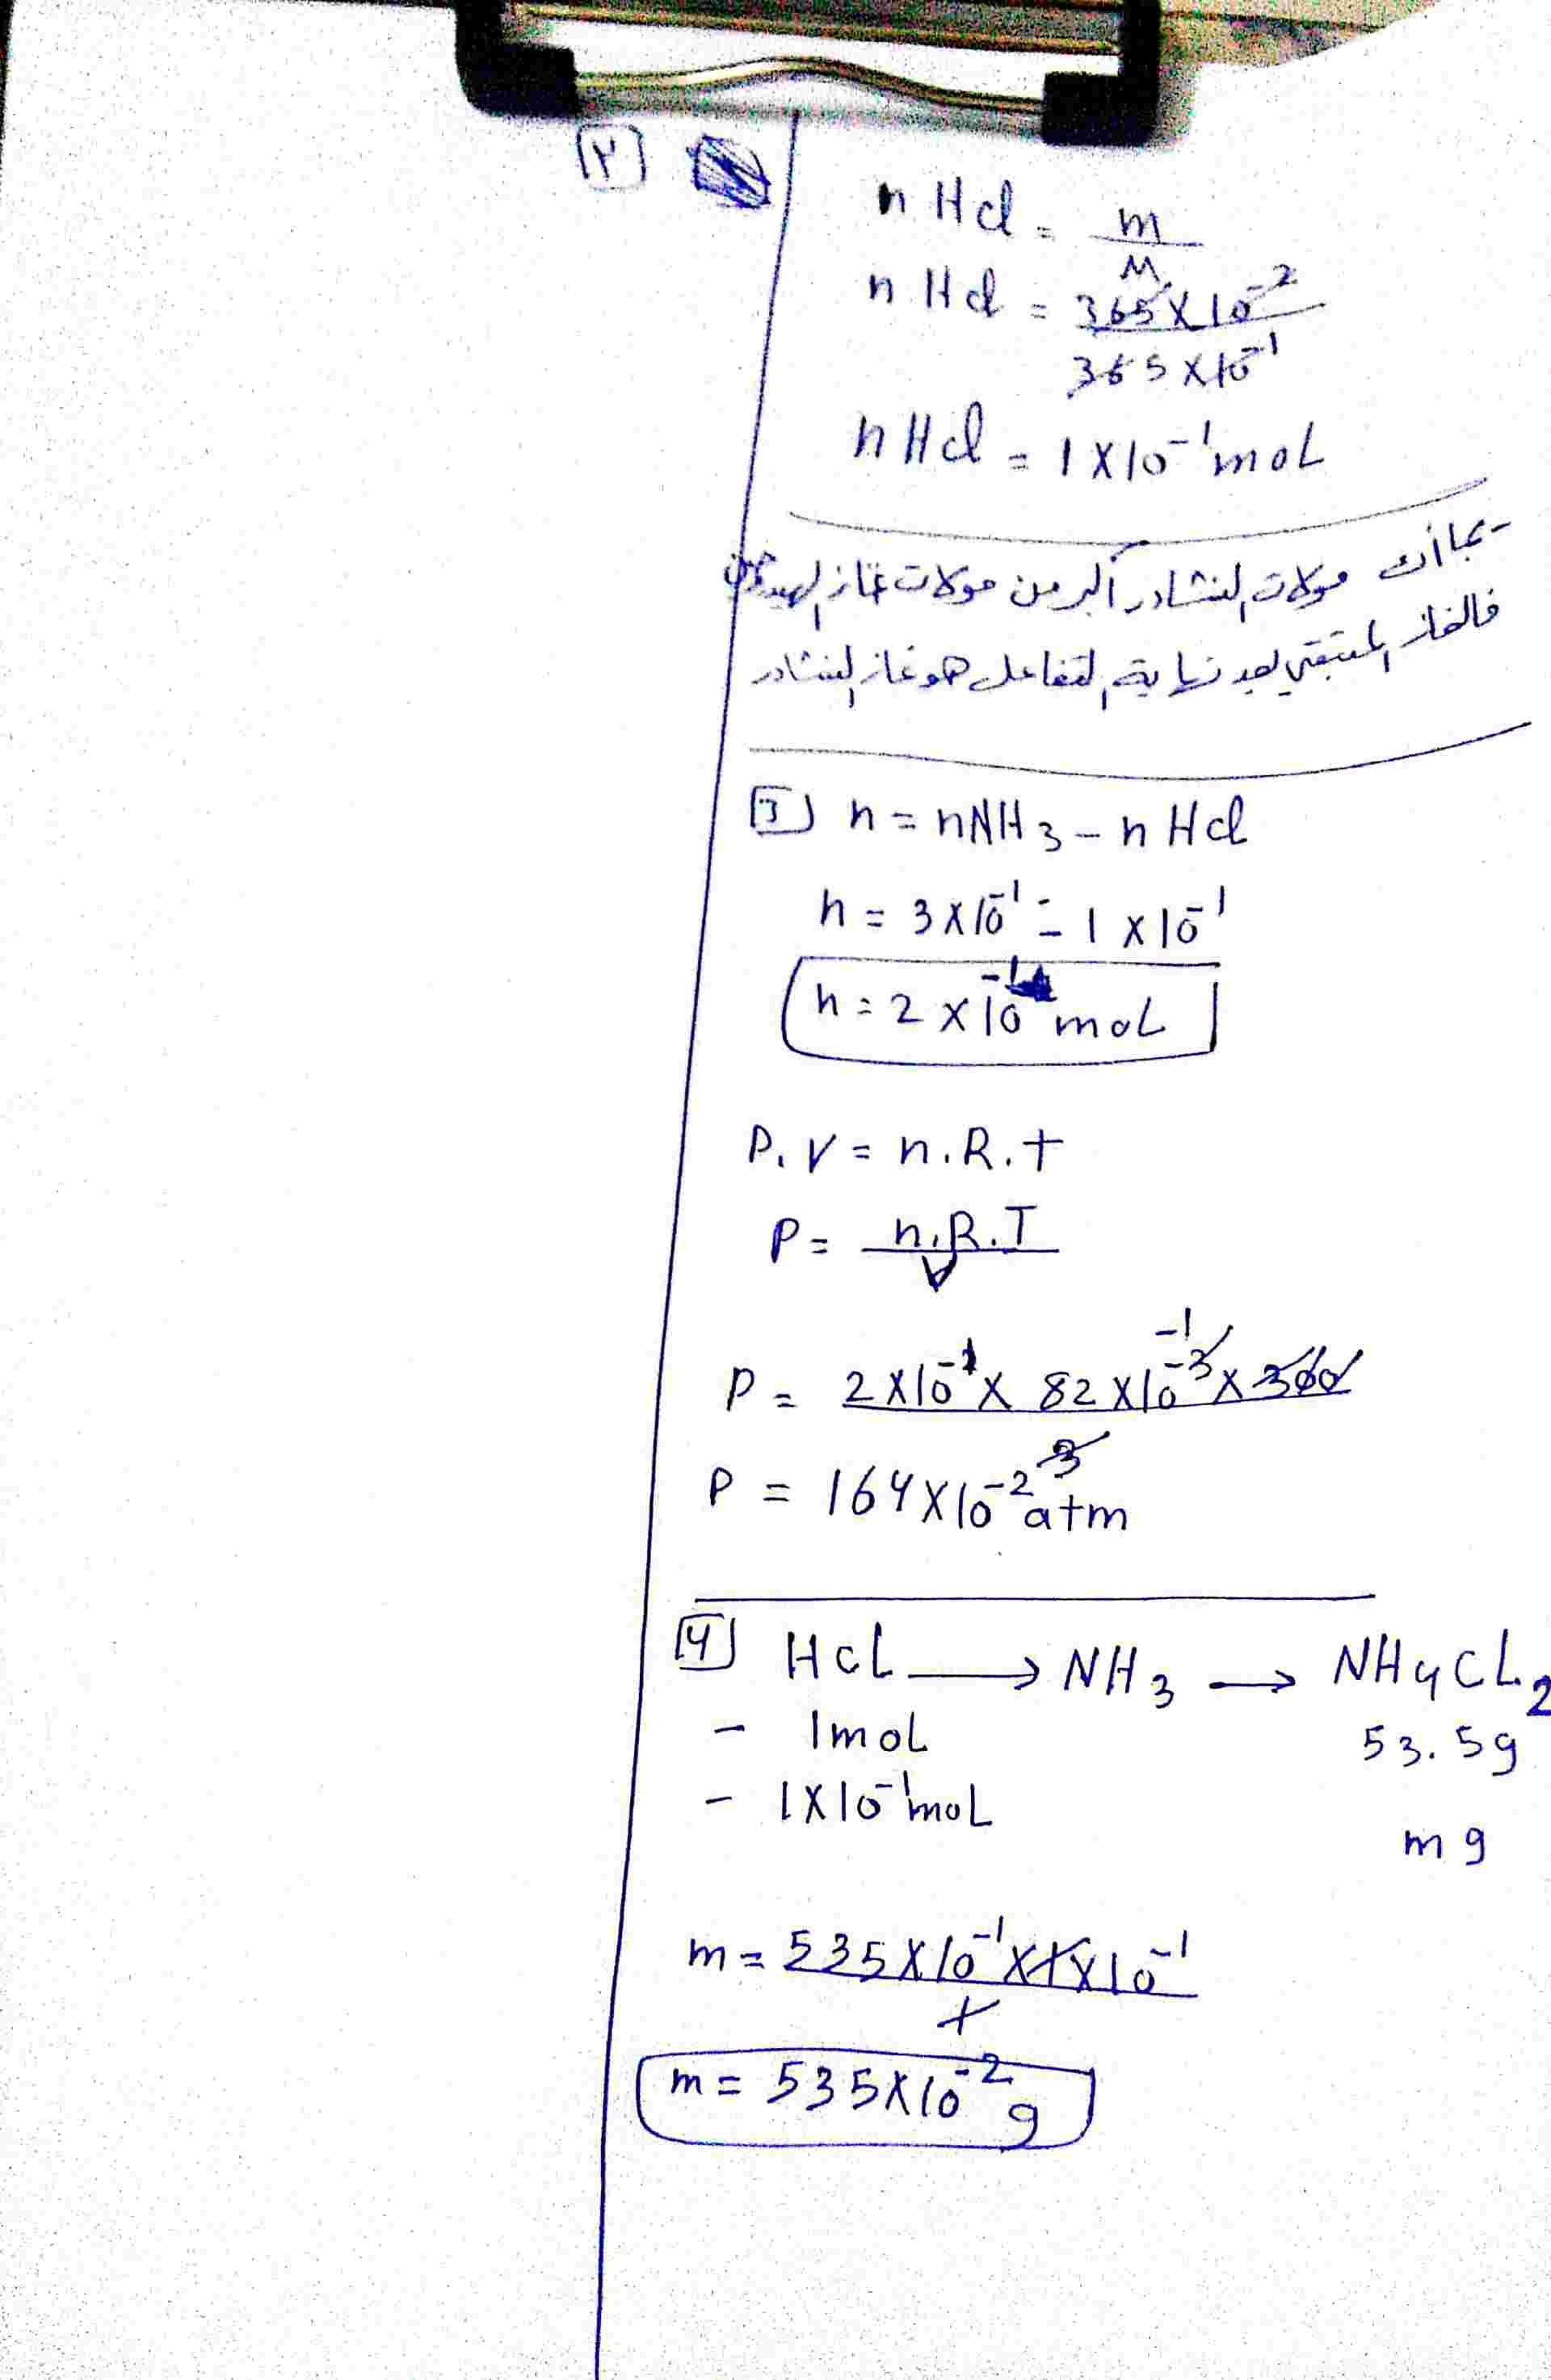 [2]
n Hcl = m / M
n Hcl = 365 X 10^-2 / 365 X 10^-1
n Hcl = 1 X 10^-1 moL
- بما أن مولات النشادر أكبر من مولات غاز
فالغاز المتبقي بعد نهاية التفاعل هو غاز النشادر
[3] n = nNH3 - n Hcl
n = 3 X 10^-1 - 1 X 10^-1
n = 2 X 10^-1 moL
P. V = n. R. t
P = n. R. T / V
P = 2 X 10^-1 X 82 X 10^-3 X 300 / 3
P = 164 X 10^-2 atm
[4] HcL → NH3 → NH4CL2
- 1moL 53.5g
- 1X10^-1 moL m g
m = 535 X 10^-1 X 1 X 10^-1 / 1
m = 535 X 10^-2 g